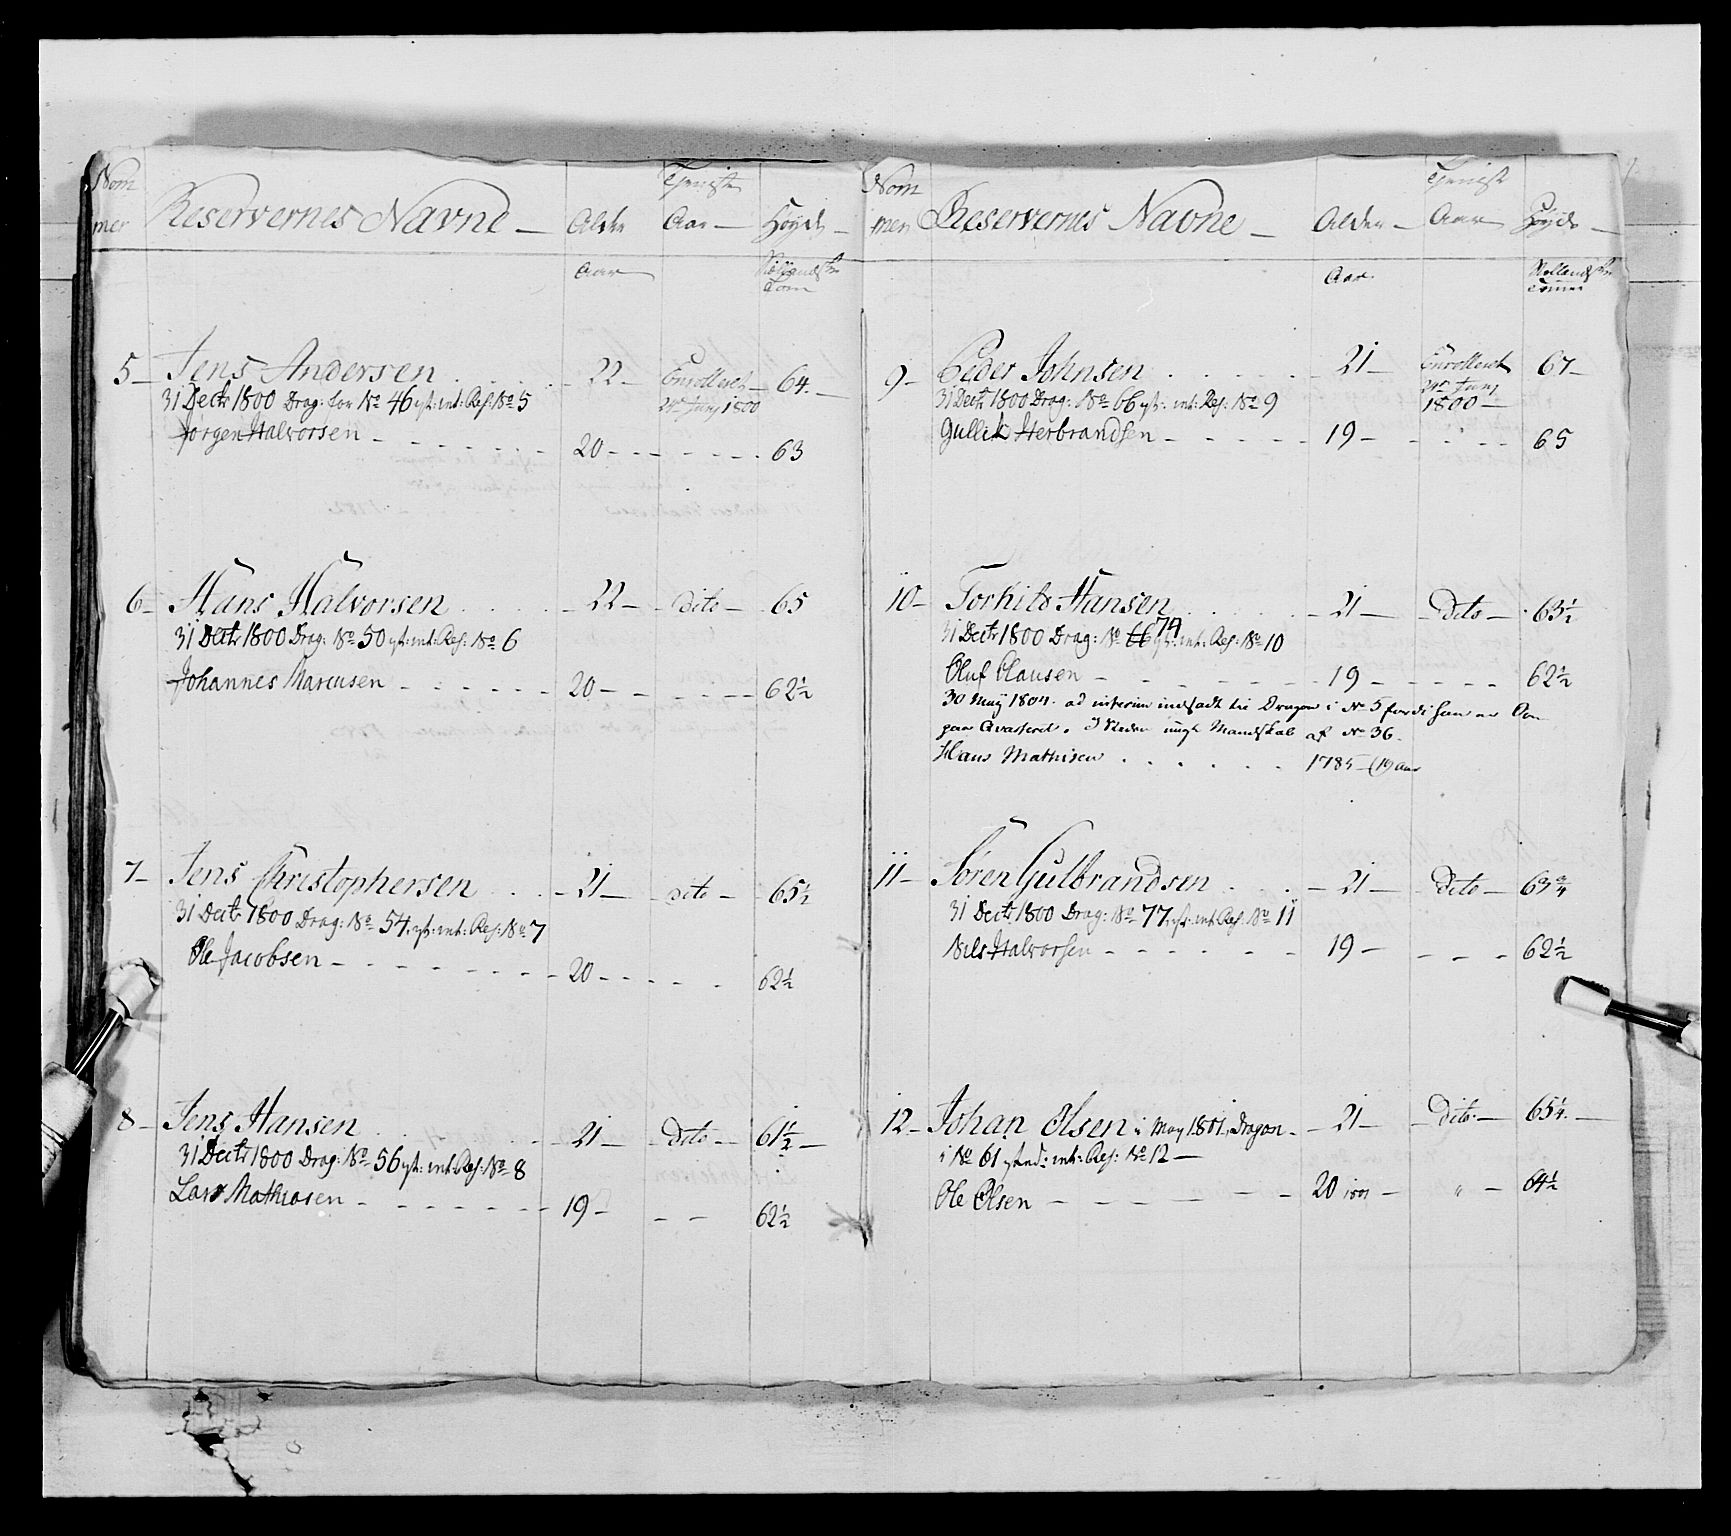 Nom
mer Reservernes Navne Alder Tjeniste Aar Høyde
Aar Tom
5 Jens Andersen 22 Enrolleret 64
31 Decbr 1800 Drag: for No 46 ist: int: Res: No 5 24 Junj 1800
Jørgen Halvorsen 20 63
6 Hans Halvorsen 22 dito 65
31 Decbr 1800 Drag: No 50 ist: int: Res: No 6
Johannes Marcusen 20 62½
7 Jens Christophersen 21 dito 65½
31 Decbr 1800 Drag: No 54 ist: int: Res: No 7
Ole Jacobsen 20 62½
8 Jens Hansen 21 dito 61½
31 Decbr 1800 Drag: No 56 ist: int: Res: No 8
Lars Mathiasen 19 62½
Nom
mer Reservernes Navne Alder Tjenist Aar Høyde
Aar Hollandske Tomer
9 Peder Johnsen 21 Enrolleret 67
31 Decbr 1800 Drag: No 66 ist: int: Res: No 9 24 Junj 1800
Gullik Herbrandsen 19 65
10 Torkild Hansen 21 dito 63½
31 Decbr 1800 Drag: No 66 74 ist: int: Res: No 10
Oluf Clausen 19 62½
30 May 1804 ad interim indsadt til Dragon i No 5 fordi han er
paa Qvarteret. I Steden ungt Mandskab af No 36
Hans Mathisen 1785 (19 aar
11 Søren Gulbrandsen 21 dito 63¾
31 Decbr 1800 Drag: No 77 ist: int: Res: No 11
Nils Halvorsen 19 62½
12 Johan Olsen i May 1801, Dragon 21 dito 65¼
i No 61 isted: int: Res: No 12
Ole Olsen 20 1801 " 64½